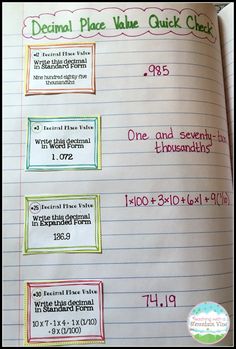 Decimal Place Value Quick Check
#12 Decimal Place Value
Write this decimal
in Standard Form
Nine hundred eighty five
thousandths
.985
#3 Decimal Place Value
Write this decimal
in Word Form
1.072
One and seventy-two
thousandths
#25 Decimal Place Value
Write this decimal
in Expanded Form
136.9
1x100 + 3x10 + 6x1 + 9(1/10)
#30 Decimal Place Value
Write this decimal
in Standard Form
10 x 7 + 1 x 4 + 1 x (1/10)
+ 9 x (1/100)
74.19
Mountain View